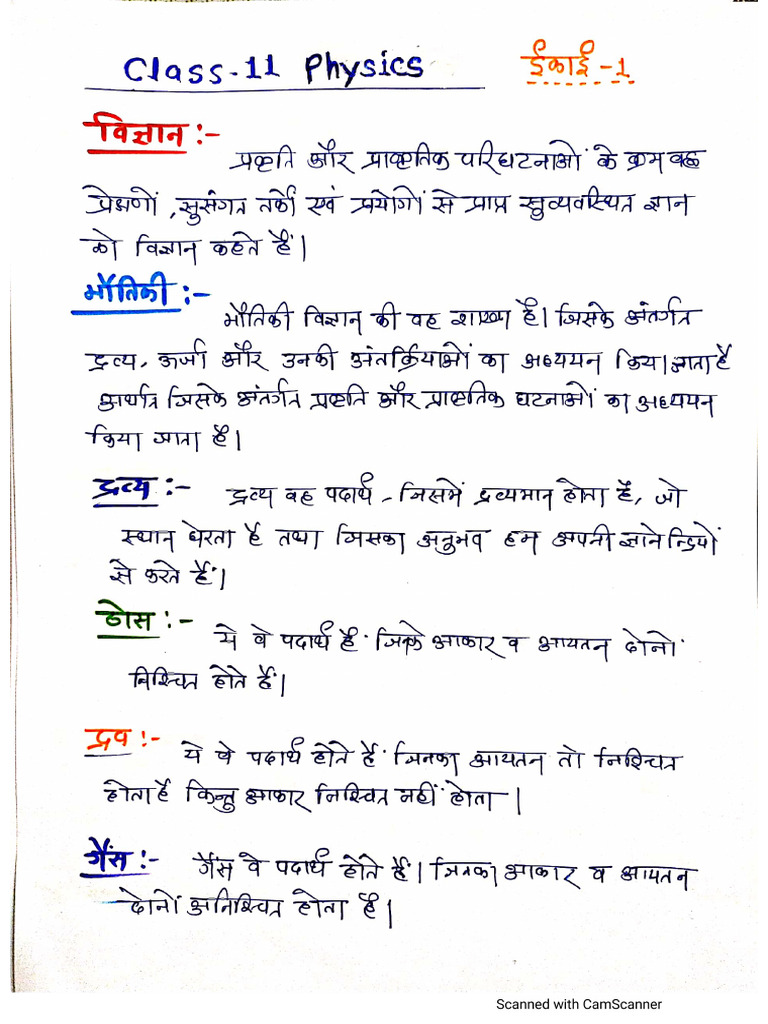 Class-11 Physics ईकाई -1
विज्ञान :-
प्रकृति और प्राकृतिक परिघटनाओं के क्रम वद्ध
प्रेक्षणों ,सुसंगत तर्को एवं प्रयोगों से प्राप्त सुव्यवस्थित ज्ञान
को विज्ञान कहते हैं।
भौतिकी :-
भौतिकी विज्ञान की वह शाखा है। जिसके अंतर्गत
द्रव्य, ऊर्जा और उनकी अंतर्क्रियाओं का अध्ययन किया जाता है
अर्थात जिसके अंतर्गत प्रकृति और प्राकृतिक घटनाओं का अध्ययन
किया जाता है।
द्रव्य :- द्रव्य वह पदार्थ , जिसमें द्रव्यमान होता है, जो
स्थान घेरता है तथा जिसका अनुभव हम अपनी ज्ञानेन्द्रियों
से करते हैं।
ठोस :- ये वे पदार्थ हैं जिनके आकार व आयतन दोनों
निश्चित होते हैं।
द्रव :- ये वे पदार्थ होते हैं जिनका आयतन तो निश्चित
होता है किन्तु आकार निश्चित नहीं होता।
गैस :- गैस वे पदार्थ होते हैं। जिनका आकार व आयतन
दोनों अनिश्चित होता है।
Scanned with CamScanner